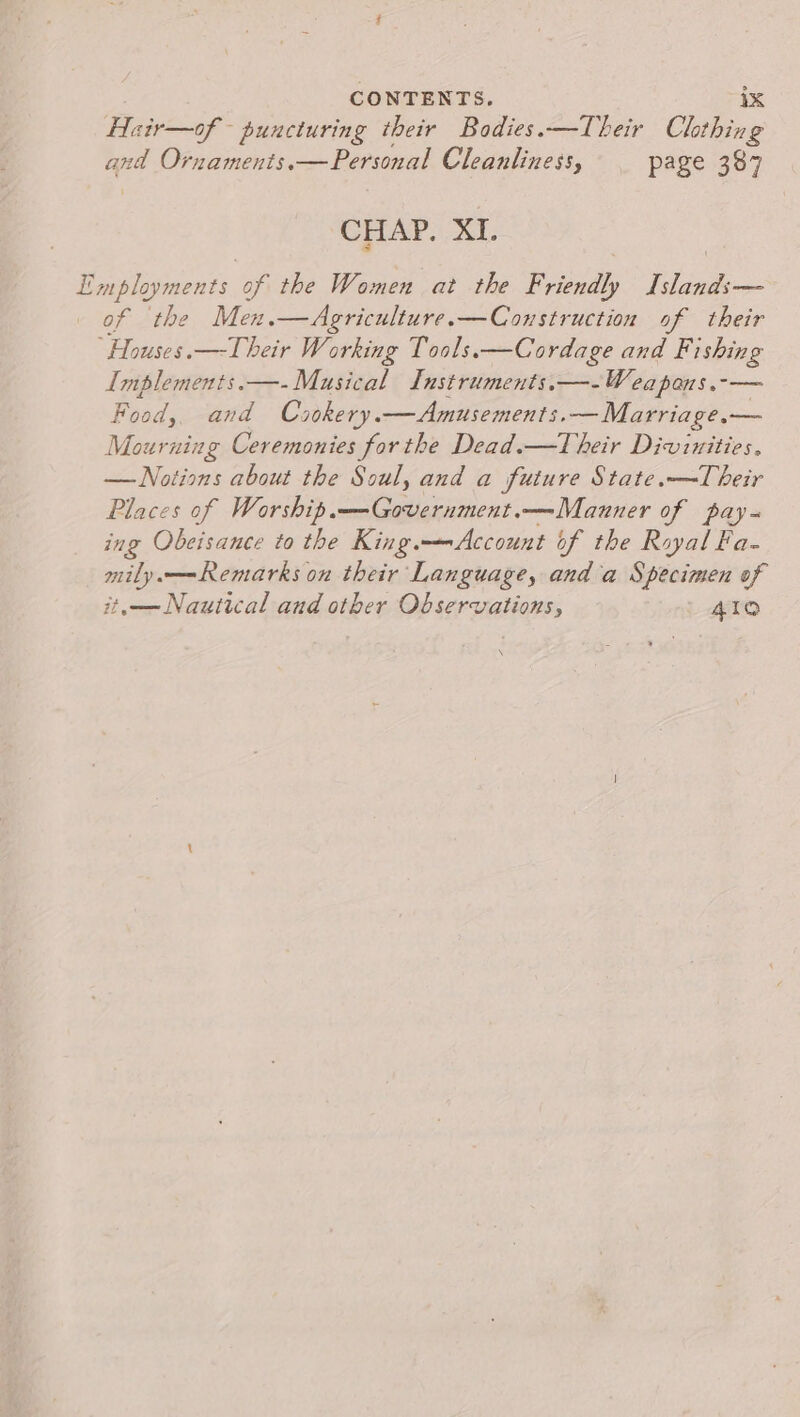 CONTENTS. ix
Hair—of puncturing their Bodies.—Their Clothing
and Ornaments.—Personal Cleanliness, page 387
CHAP. XI.
Employments of the Women at the Friendly Islands—
of the Men.—Agriculture.—Construction of their
Houses.—Their Working Tools.—Cordage and Fishing
Implements.—Musical Instruments.—Weapons.—
Food, and Cookery.—Amusements.—Marriage.—
Mourning Ceremonies for the Dead.—Their Divinities.
—Notions about the Soul, and a future State.—Their
Places of Worship.—Government.—Manner of pay-
ing Obeisance to the King.—Account of the Royal Fa-
mily.—Remarks on their Language, and a Specimen of
it.—Nautical and other Observations, 410